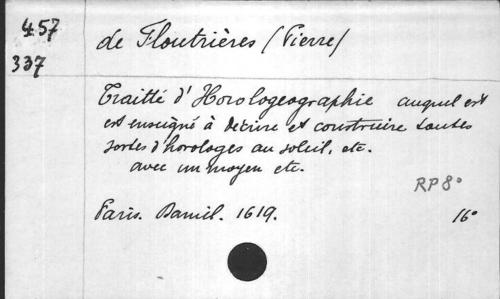 457
337
de Floutrières (Pierre)
Traitté d'Horologeographie auquel est
est enseigné à décrire et construire toutes
sortes d'horologes au soleil, etc.
avec un moyen etc.
RP 8°
Paris. Daniel. 1619. 16°